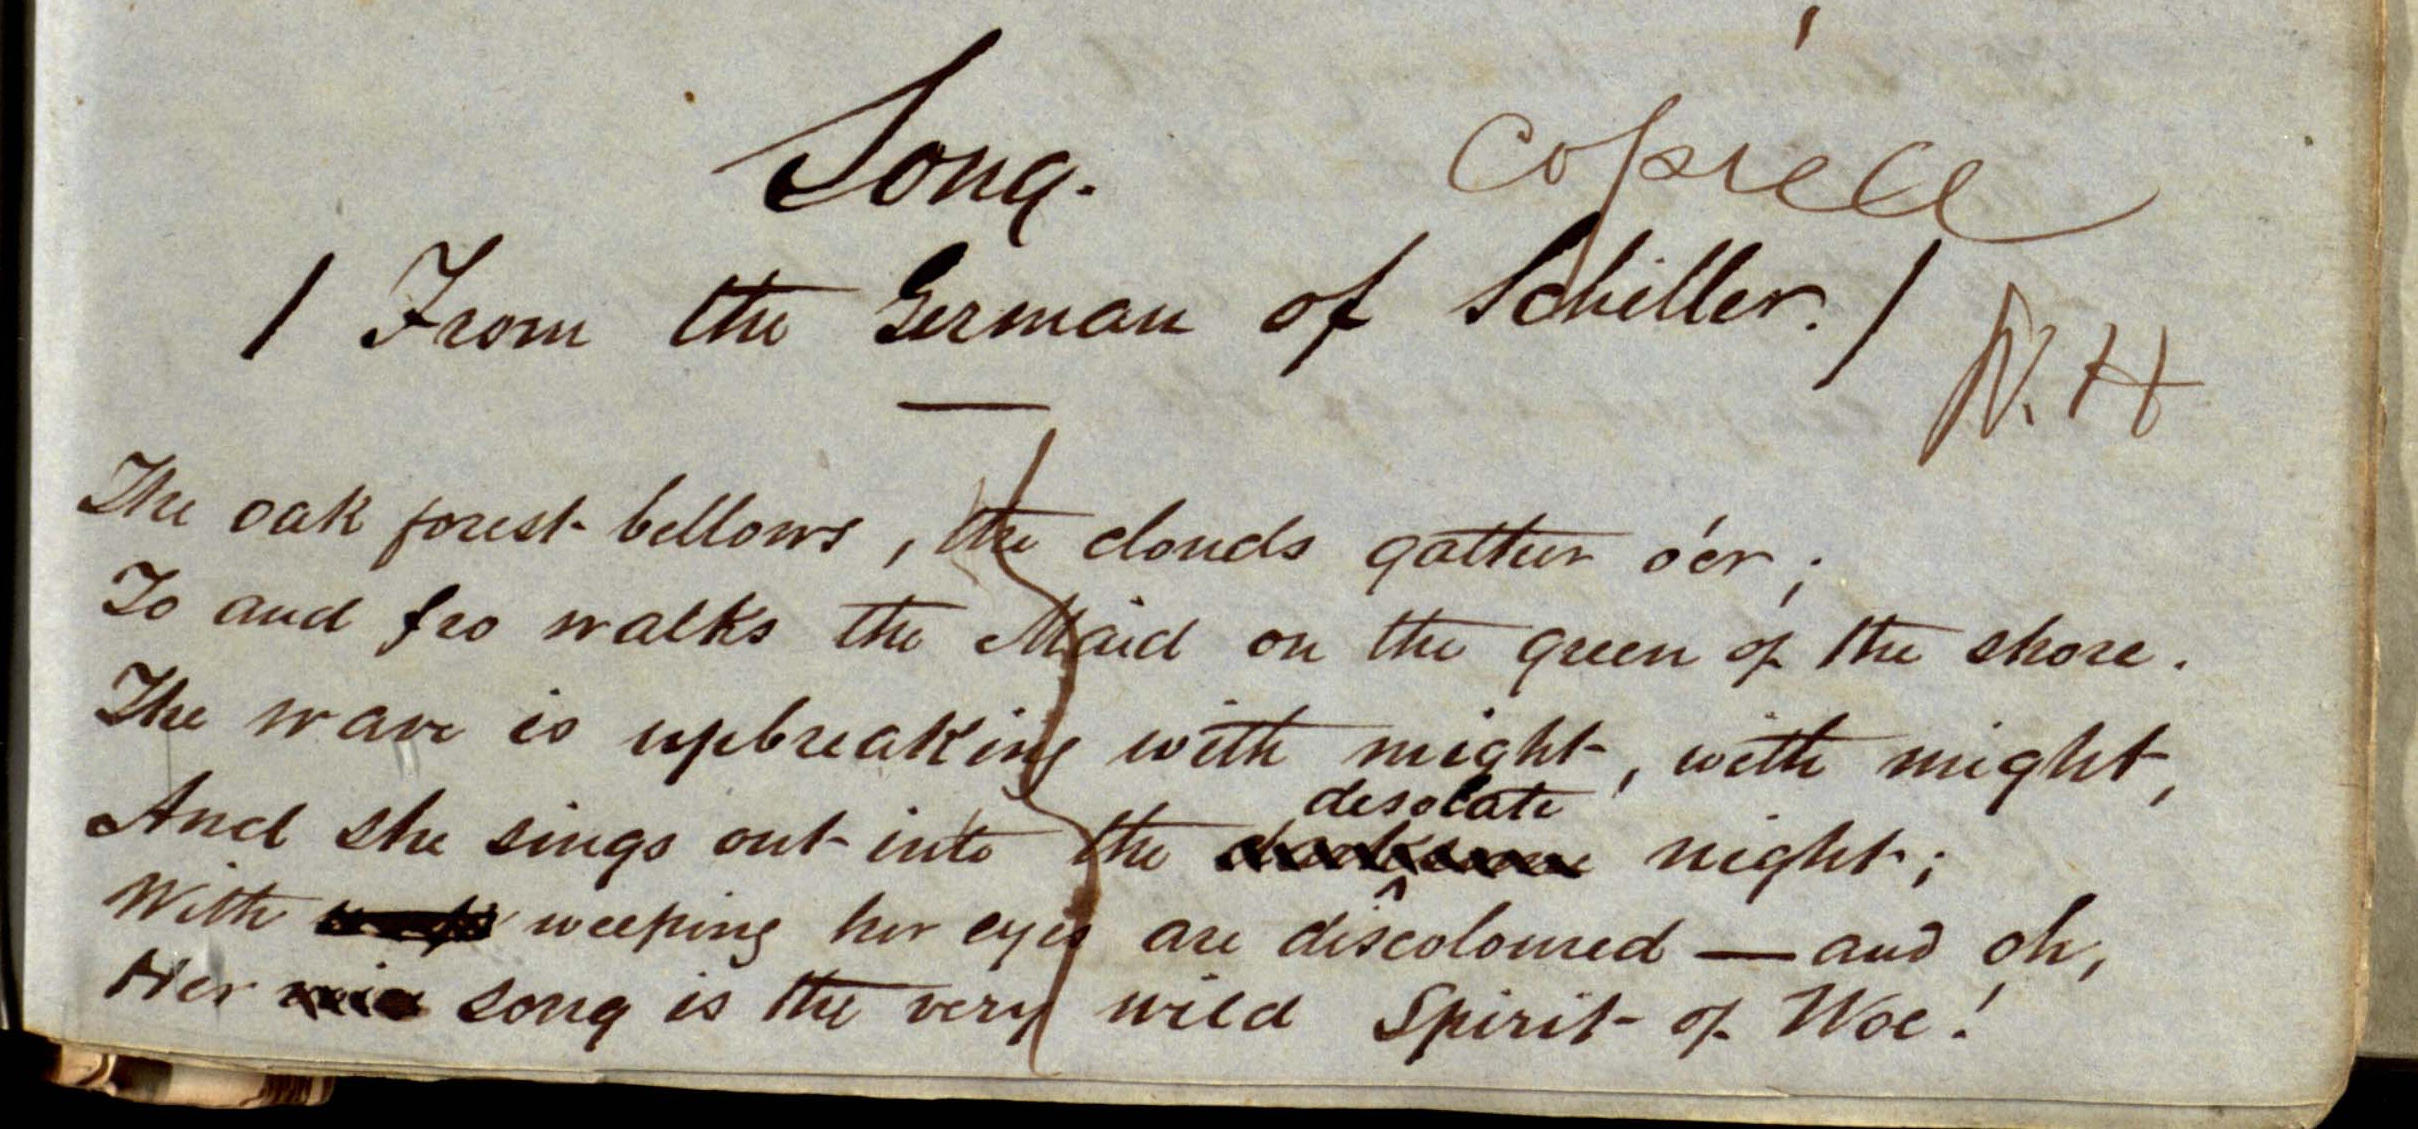 Song.
copied
/ From the German of Schiller. /
N. H
The oak forest bellows, the clouds gather o'er;
To and fro walks the Maid on the green of the shore.
The wave is upbreaking with might, with might,
desolate
And she sings out into the night;
With weeping her eyes are discoloured — and oh,
Her song is the very wild Spirit of Woe!